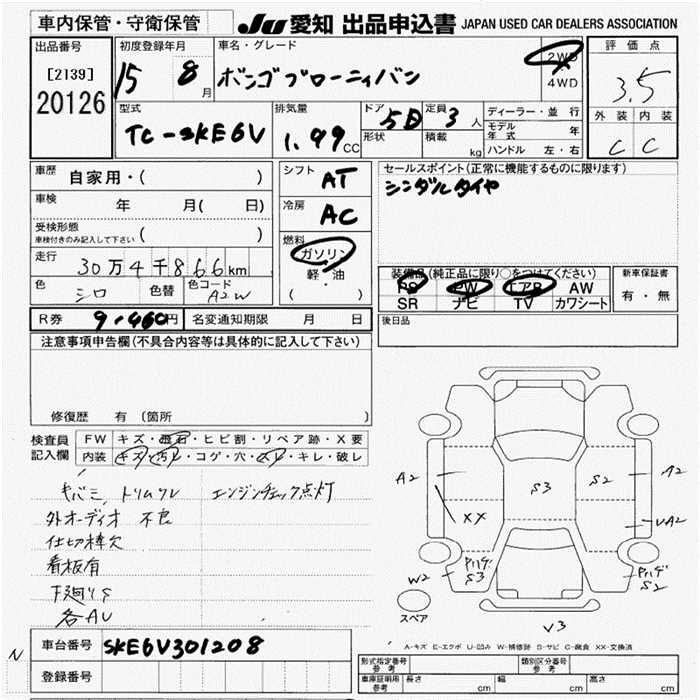 車内保管・守衛保管
JU 愛知 出品申込書 JAPAN USED CAR DEALERS ASSOCIATION
出品番号
[2139]
20126
初度登録年月
15 8 月
車名・グレード
ボンゴブローニィバン
2WD
4WD
評価点
3.5
外装 内装
C C
型式
TC-SKE6V
排気量
1.99 CC
ドア 5D
形状
定員 3 人
積載 kg
ディーラー・並行
モデル年式 年
ハンドル 左・右
車歴 自家用・( )
車検 年 月( 日)
受検形態
車検付きのみ記入して下さい ( )
走行 30万4千866km
色 シロ 色替 色コード A2W
シフト AT
冷房 AC
燃料
ガソリン
軽・油
・
( )
セールスポイント(正常に機能するものに限ります)
シングルタイヤ
装備品(純正品に限り○をつけてください)
PS PW エアB AW
SR ナビ TV カワシート
新車保証書
有・無
R券 9,460円 名変通知期限 月 日
後日品
注意事項申告欄(不具合内容等は具体的に記入して下さい)
修復歴 有 (箇所 )
検査員記入欄
FW キズ・飛石・ヒビ割・リペア跡・X要
内装 キズ・汚レ・コゲ・穴・スレ・キレ・破レ
キバミ トリムワレ エンジンチェック点灯
外オーディオ 不良
仕切棒欠
看板有
下廻りS
各AU
A2 S3 S2 A2
XX UA2
W2 PハゲS3 PハゲS2
スペア
V3
A-キズ E-エクボ U-凹み W-補修跡 S-サビ C-腐食 XX-交換済
N
車台番号 SKE6V301208
登録番号
型式指定番号 参考 類別区分番号 参考
車庫証明用 参考 長さ cm 幅 cm 高さ cm